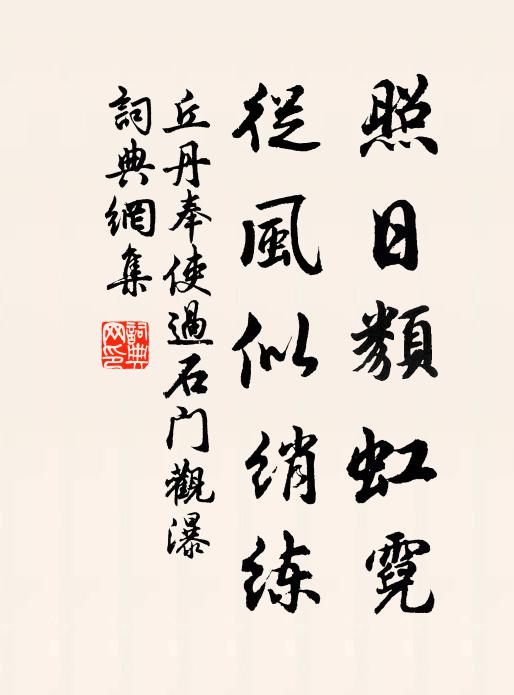 照日類虹霓
從風似綃練
丘丹奉使過石门觀瀑
詞典網集
詞典网印